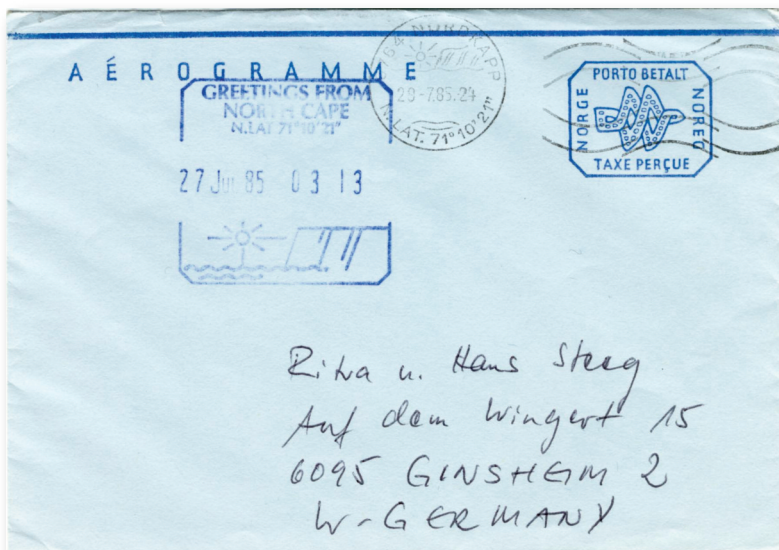 AÉROGRAMME
GREETINGS FROM
NORTH CAPE
N.LAT 71°10'21"
27 Jul 85 03 13
9764 NORDKAPP
28-7.85.24
N.LAT. 71°10'21"
PORTO BETALT
NORGE
NOREG
TAXE PERÇUE
u. Hans Steeg
Auf dem Wingert 15
6095 GINSHEIM 2
W-GERMANY